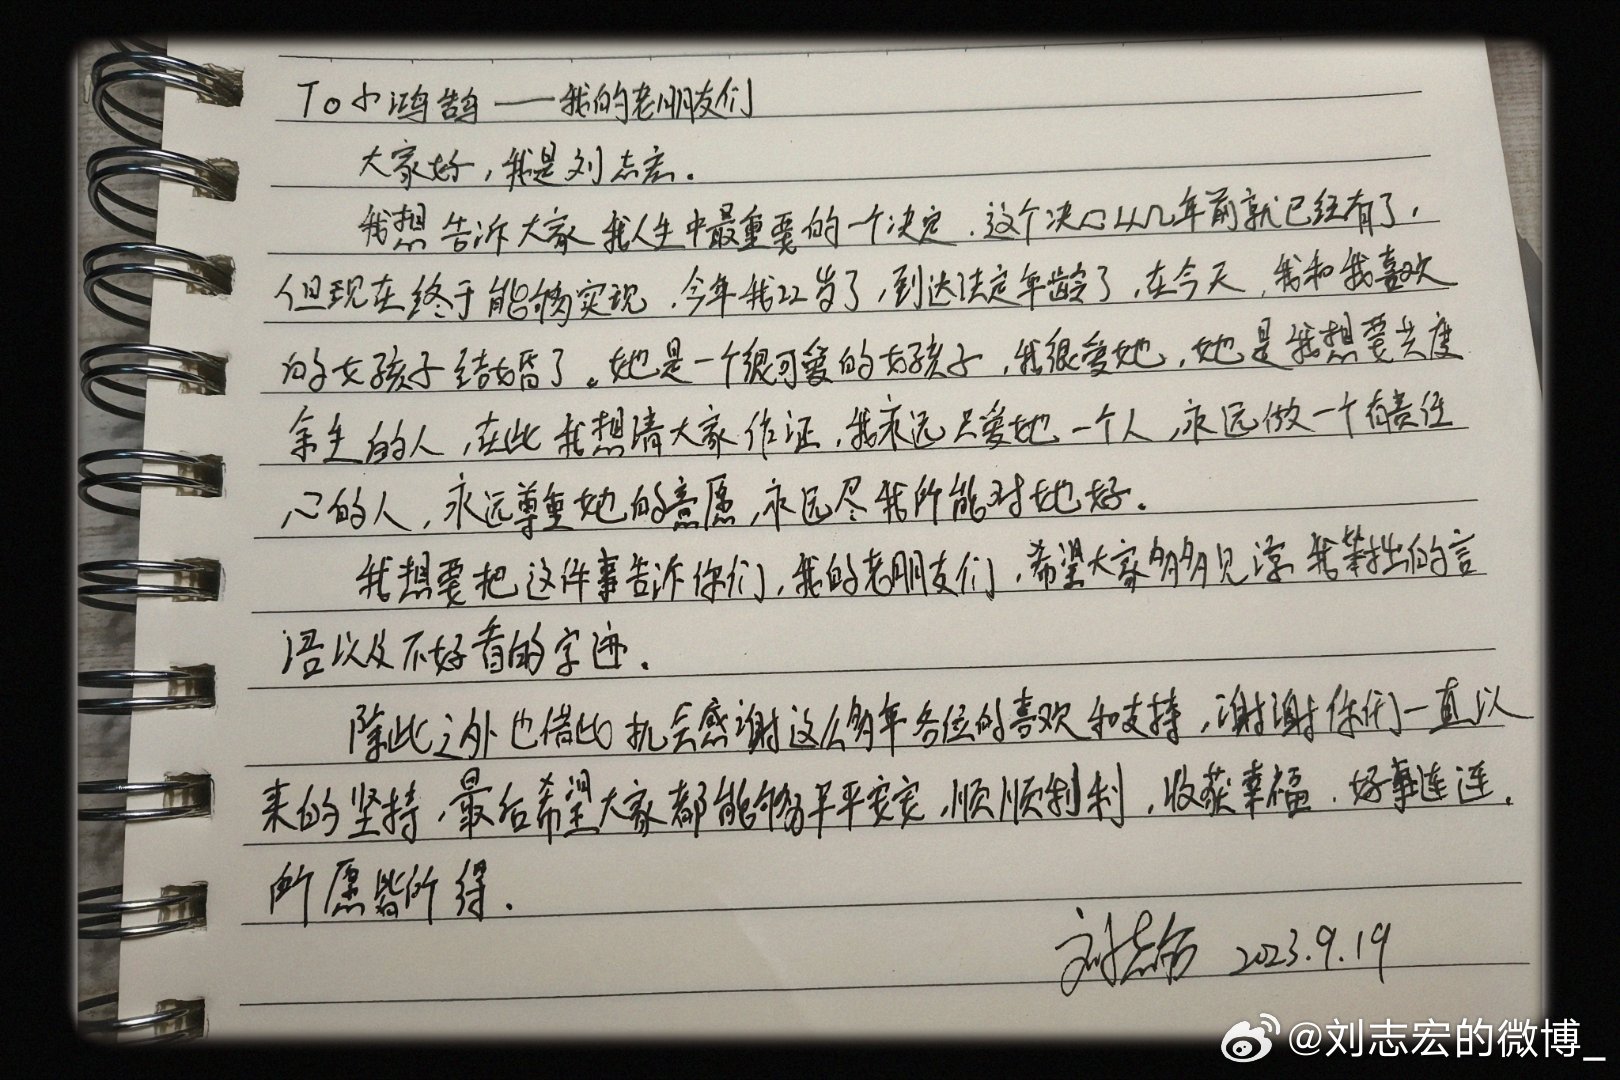 To 小鸿鹄——我的老朋友们
大家好，我是刘志宏.
我想告诉大家我人生中最重要的一个决定.这个决心从几年前就已经有了，
但现在终于能够实现.今年我22岁了，到达法定年龄了，在今天，我和我喜欢
的女孩子结婚了。她是一个很可爱的女孩子，我很爱她，她是我想要共度
余生的人，在此我想请大家作证，我永远只爱她一个人，永远做一个有责任
心的人，永远尊重她的意愿，永远尽我所能对她好.
我想要把这件事告诉你们，我的老朋友们，希望大家多多见谅我笨拙的言
语以及不好看的字迹.
除此之外也借此机会感谢这么多年各位的喜欢和支持，谢谢你们一直以
来的坚持，最后希望大家都能够平平安安，顺顺利利，收获幸福.好事连连.
所愿皆所得.
刘志宏 2023.9.19
@刘志宏的微博_